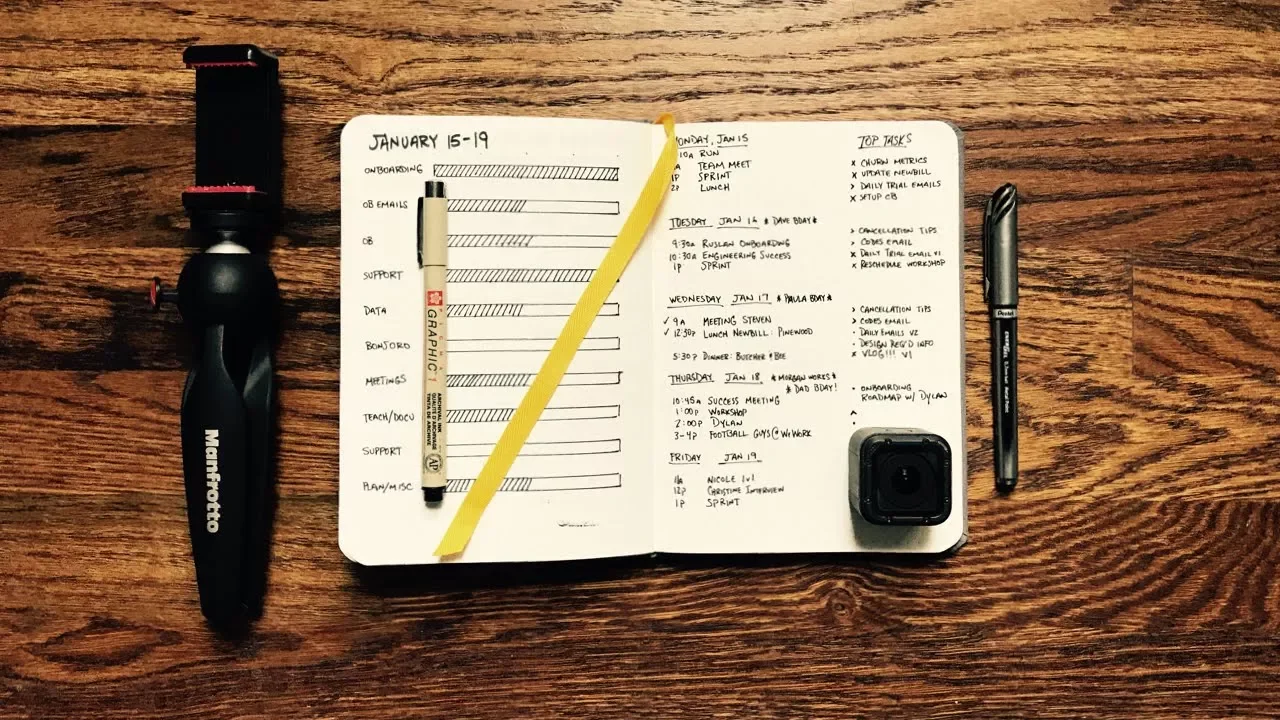 JANUARY 15-19
ONBOARDING
OB EMAILS
OB
SUPPORT
DATA
BONJORO
MEETINGS
TEACH/DOCU
SUPPORT
PLAN/MISC
MONDAY, JAN 15
10A RUN
A TEAM MEET
1P SPRINT
2P LUNCH
TUESDAY JAN 16 * DAVE BDAY *
9:30A RUSLAN ONBOARDING
10:30A ENGINEERING SUCCESS
1P SPRINT
WEDNESDAY JAN 17 * PAULA BDAY *
✓ 9A MEETING STEVEN
✓ 12:30P LUNCH NEWBILL: PINEWOOD
5:30P DINNER: BUTCHER & BEE
THURSDAY JAN 18 * MORGAN WORKS *
* DAD BDAY!
10:45A SUCCESS MEETING
1:00P WORKSHOP
2:00P DYLAN
3-4P FOOTBALL GUYS @ WEWORK
FRIDAY JAN 19
11A NICOLE 1v1
12P CHRISTINE INTERVIEW
1P SPRINT
TOP TASKS
x CHURN METRICS
x UPDATE NEWBILL
> DAILY TRIAL EMAILS
x SETUP OB
> CANCELLATION TIPS
> CODES EMAIL
x DAILY TRIAL EMAIL V1
x RESCHEDULE WORKSHOP
> CANCELLATION TIPS
> CODES EMAIL
· DAILY EMAILS V2
· DESIGN REQ'D INFO
x VLOG!!! V1
· ONBOARDING
ROADMAP W/ DYLAN
Manfrotto
PIGMA
GRAPHIC 1
ARCHIVAL INK
QUALITÉ D'ARCHIVAGE
TINTA DE ARCHIVE
AP
Pentel